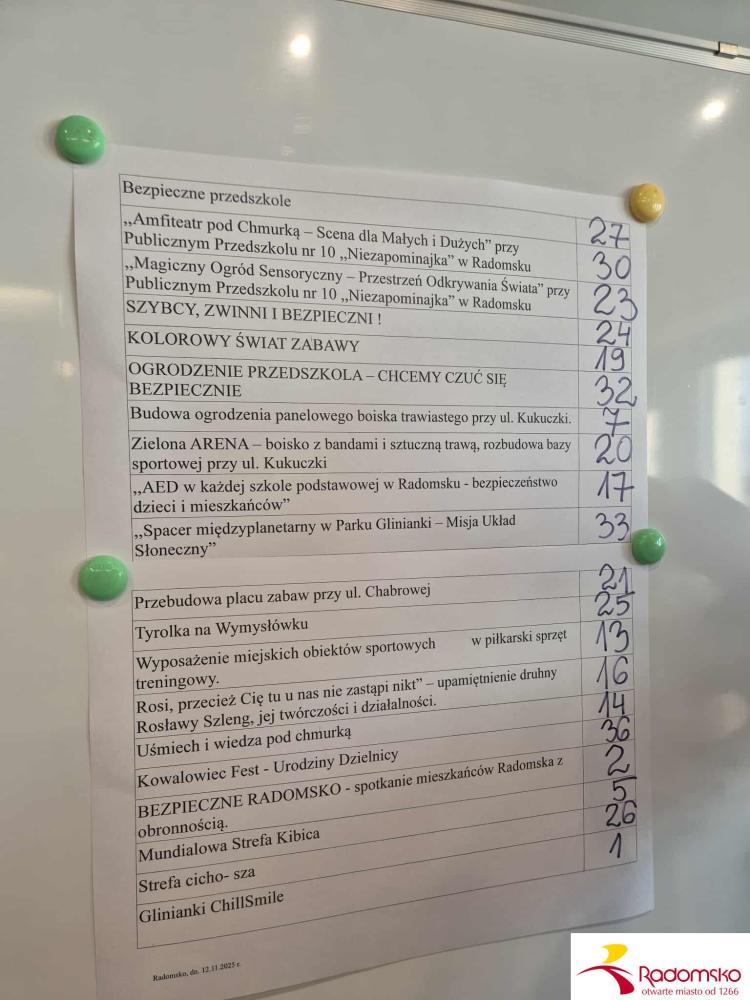 Bezpieczne przedszkole 27
„Amfiteatr pod Chmurką – Scena dla Małych i Dużych” przy
Publicznym Przedszkolu nr 10 „Niezapominajka” w Radomsku 30
„Magiczny Ogród Sensoryczny – Przestrzeń Odkrywania Świata” przy
Publicznym Przedszkolu nr 10 „Niezapominajka” w Radomsku 23
SZYBCY, ZWINNI I BEZPIECZNI ! 24
KOLOROWY ŚWIAT ZABAWY 19
OGRODZENIE PRZEDSZKOLA – CHCEMY CZUĆ SIĘ
BEZPIECZNIE 32
Budowa ogrodzenia panelowego boiska trawiastego przy ul. Kukuczki. 7
Zielona ARENA – boisko z bandami i sztuczną trawą, rozbudowa bazy
sportowej przy ul. Kukuczki 20
„AED w każdej szkole podstawowej w Radomsku - bezpieczeństwo
dzieci i mieszkańców” 17
„Spacer międzyplanetarny w Parku Glinianki – Misja Układ
Słoneczny” 33
Przebudowa placu zabaw przy ul. Chabrowej 21
Tyrolka na Wymysłówku 25
Wyposażenie miejskich obiektów sportowych w piłkarski sprzęt
treningowy. 13
Rosi, przecież Cię tu u nas nie zastąpi nikt” – upamiętnienie druhny
Rosławy Szleng, jej twórczości i działalności. 16
Uśmiech i wiedza pod chmurką 14
Kowalowiec Fest - Urodziny Dzielnicy 36
BEZPIECZNE RADOMSKO - spotkanie mieszkańców Radomska z
obronnością. 2
Mundialowa Strefa Kibica 5
Strefa cicho- sza 26
Glinianki ChillSmile 1
Radomsko, dn. 12.11.2025 r.
Radomsko
otwarte miasto od 1266